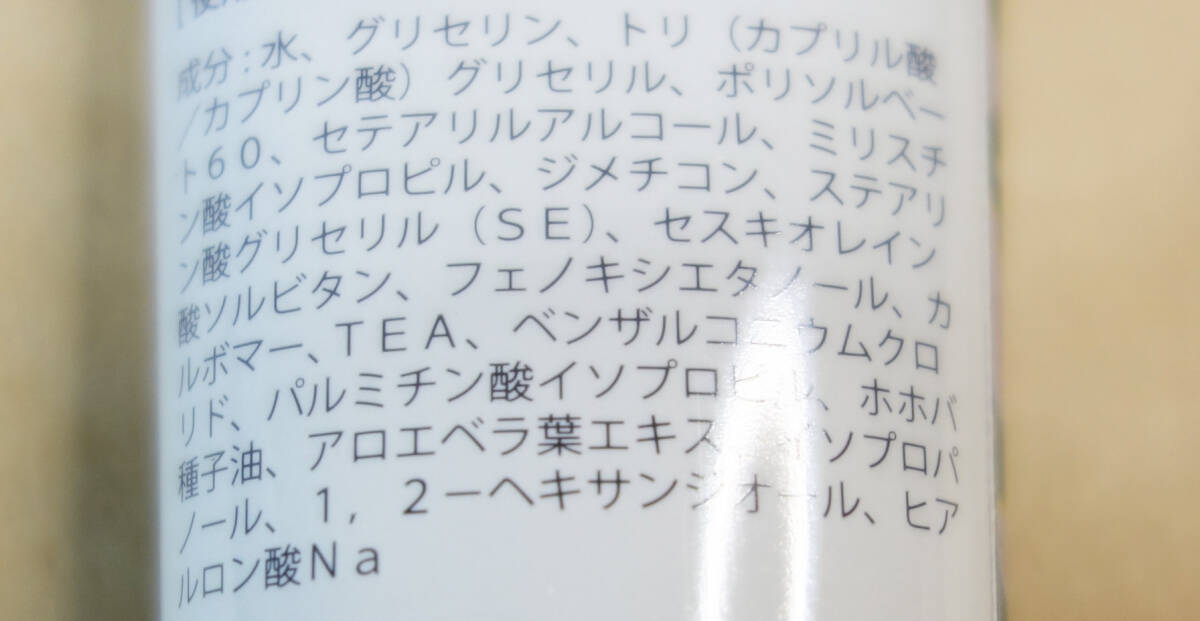 成分:水、グリセリン、トリ(カプリル酸
/カプリン酸)グリセリル、ポリソルベー
ト60、セテアリルアルコール、ミリスチ
ン酸イソプロピル、ジメチコン、ステアリ
ン酸グリセリル(SE)、セスキオレイン
酸ソルビタン、フェノキシエタノール、カ
ルボマー、TEA、ベンザルコニウムクロ
リド、パルミチン酸イソプロピル、ホホバ
種子油、アロエベラ葉エキス、イソプロパ
ノール、1,2-ヘキサンジオール、ヒア
ルロン酸Na